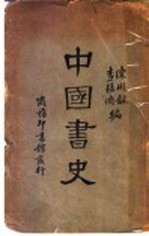 陳彬龢
查猛濟
編
中國書史
商務印書館發行